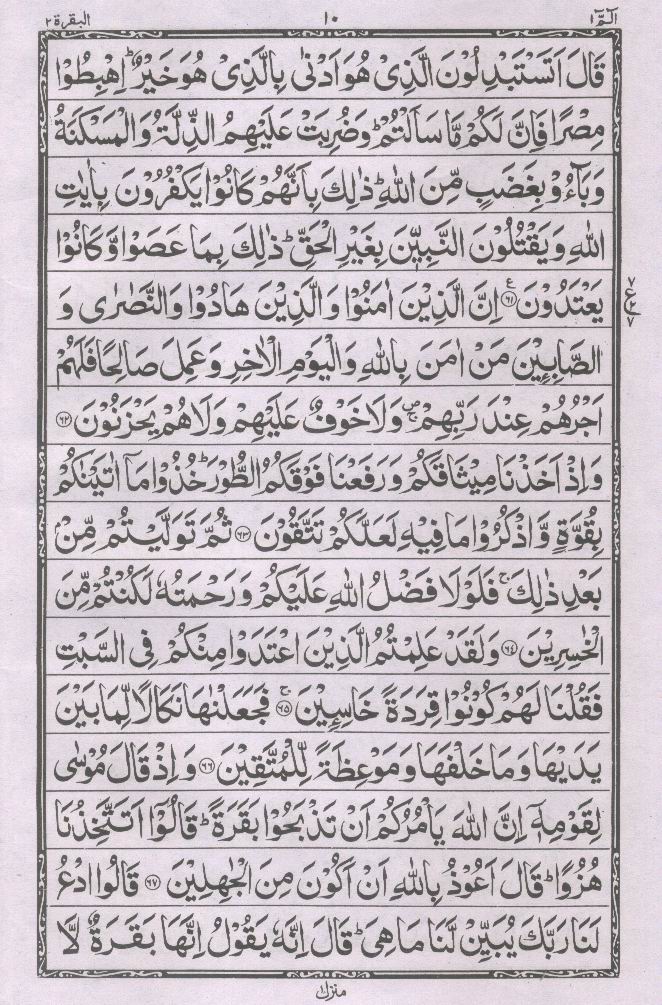 الٓمّٓ ١ ١٠ البقرة ٢
قَالَ اَتَسْتَبْدِلُوْنَ الَّذِیْ هُوَ اَدْنٰی بِالَّذِیْ هُوَ خَیْرٌ ؕ اِهْبِطُوْا
مِصْرًا فَاِنَّ لَكُمْ مَّا سَاَلْتُمْ ؕ وَضُرِبَتْ عَلَیْهِمُ الذِّلَّةُ وَالْمَسْكَنَةُ
وَبَآءُوْ بِغَضَبٍ مِّنَ اللّٰهِ ؕ ذٰلِكَ بِاَنَّهُمْ كَانُوْا یَكْفُرُوْنَ بِاٰیٰتِ
اللّٰهِ وَیَقْتُلُوْنَ النَّبِیّٖنَ بِغَیْرِ الْحَقِّ ؕ ذٰلِكَ بِمَا عَصَوْا وَّكَانُوْا
یَعْتَدُوْنَ ﴿٦١﴾ ع اِنَّ الَّذِیْنَ اٰمَنُوْا وَالَّذِیْنَ هَادُوْا وَالنَّصٰرٰی وَ
٧ ع ٢ ٧
الصَّابِئِیْنَ مَنْ اٰمَنَ بِاللّٰهِ وَالْیَوْمِ الْاٰخِرِ وَعَمِلَ صَالِحًا فَلَهُمْ
اَجْرُهُمْ عِنْدَ رَبِّهِمْ ۪ۚ وَلَا خَوْفٌ عَلَیْهِمْ وَلَا هُمْ یَحْزَنُوْنَ ﴿٦٢﴾
وَاِذْ اَخَذْنَا مِیْثَاقَكُمْ وَرَفَعْنَا فَوْقَكُمُ الطُّوْرَ ؕ خُذُوْا مَاۤ اٰتَیْنٰكُمْ
بِقُوَّةٍ وَّاذْكُرُوْا مَا فِیْهِ لَعَلَّكُمْ تَتَّقُوْنَ ﴿٦٣﴾ ثُمَّ تَوَلَّیْتُمْ مِّنْۢ
بَعْدِ ذٰلِكَ ۚ فَلَوْلَا فَضْلُ اللّٰهِ عَلَیْكُمْ وَرَحْمَتُهٗ لَكُنْتُمْ مِّنَ
الْخٰسِرِیْنَ ﴿٦٤﴾ وَلَقَدْ عَلِمْتُمُ الَّذِیْنَ اعْتَدَوْا مِنْكُمْ فِی السَّبْتِ
فَقُلْنَا لَهُمْ كُوْنُوْا قِرَدَةً خَاسِئِیْنَ ﴿٦٥﴾ ۚ فَجَعَلْنٰهَا نَكَالًا لِّمَا بَیْنَ
یَدَیْهَا وَمَا خَلْفَهَا وَمَوْعِظَةً لِّلْمُتَّقِیْنَ ﴿٦٦﴾ وَاِذْ قَالَ مُوْسٰی
لِقَوْمِهٖۤ اِنَّ اللّٰهَ یَاْمُرُكُمْ اَنْ تَذْبَحُوْا بَقَرَةً ؕ قَالُوْۤا اَتَتَّخِذُنَا
هُزُوًا ؕ قَالَ اَعُوْذُ بِاللّٰهِ اَنْ اَكُوْنَ مِنَ الْجٰهِلِیْنَ ﴿٦٧﴾ قَالُوا ادْعُ
لَنَا رَبَّكَ یُبَیِّنْ لَّنَا مَا هِیَ ؕ قَالَ اِنَّهٗ یَقُوْلُ اِنَّهَا بَقَرَةٌ لَّا
منزل ١